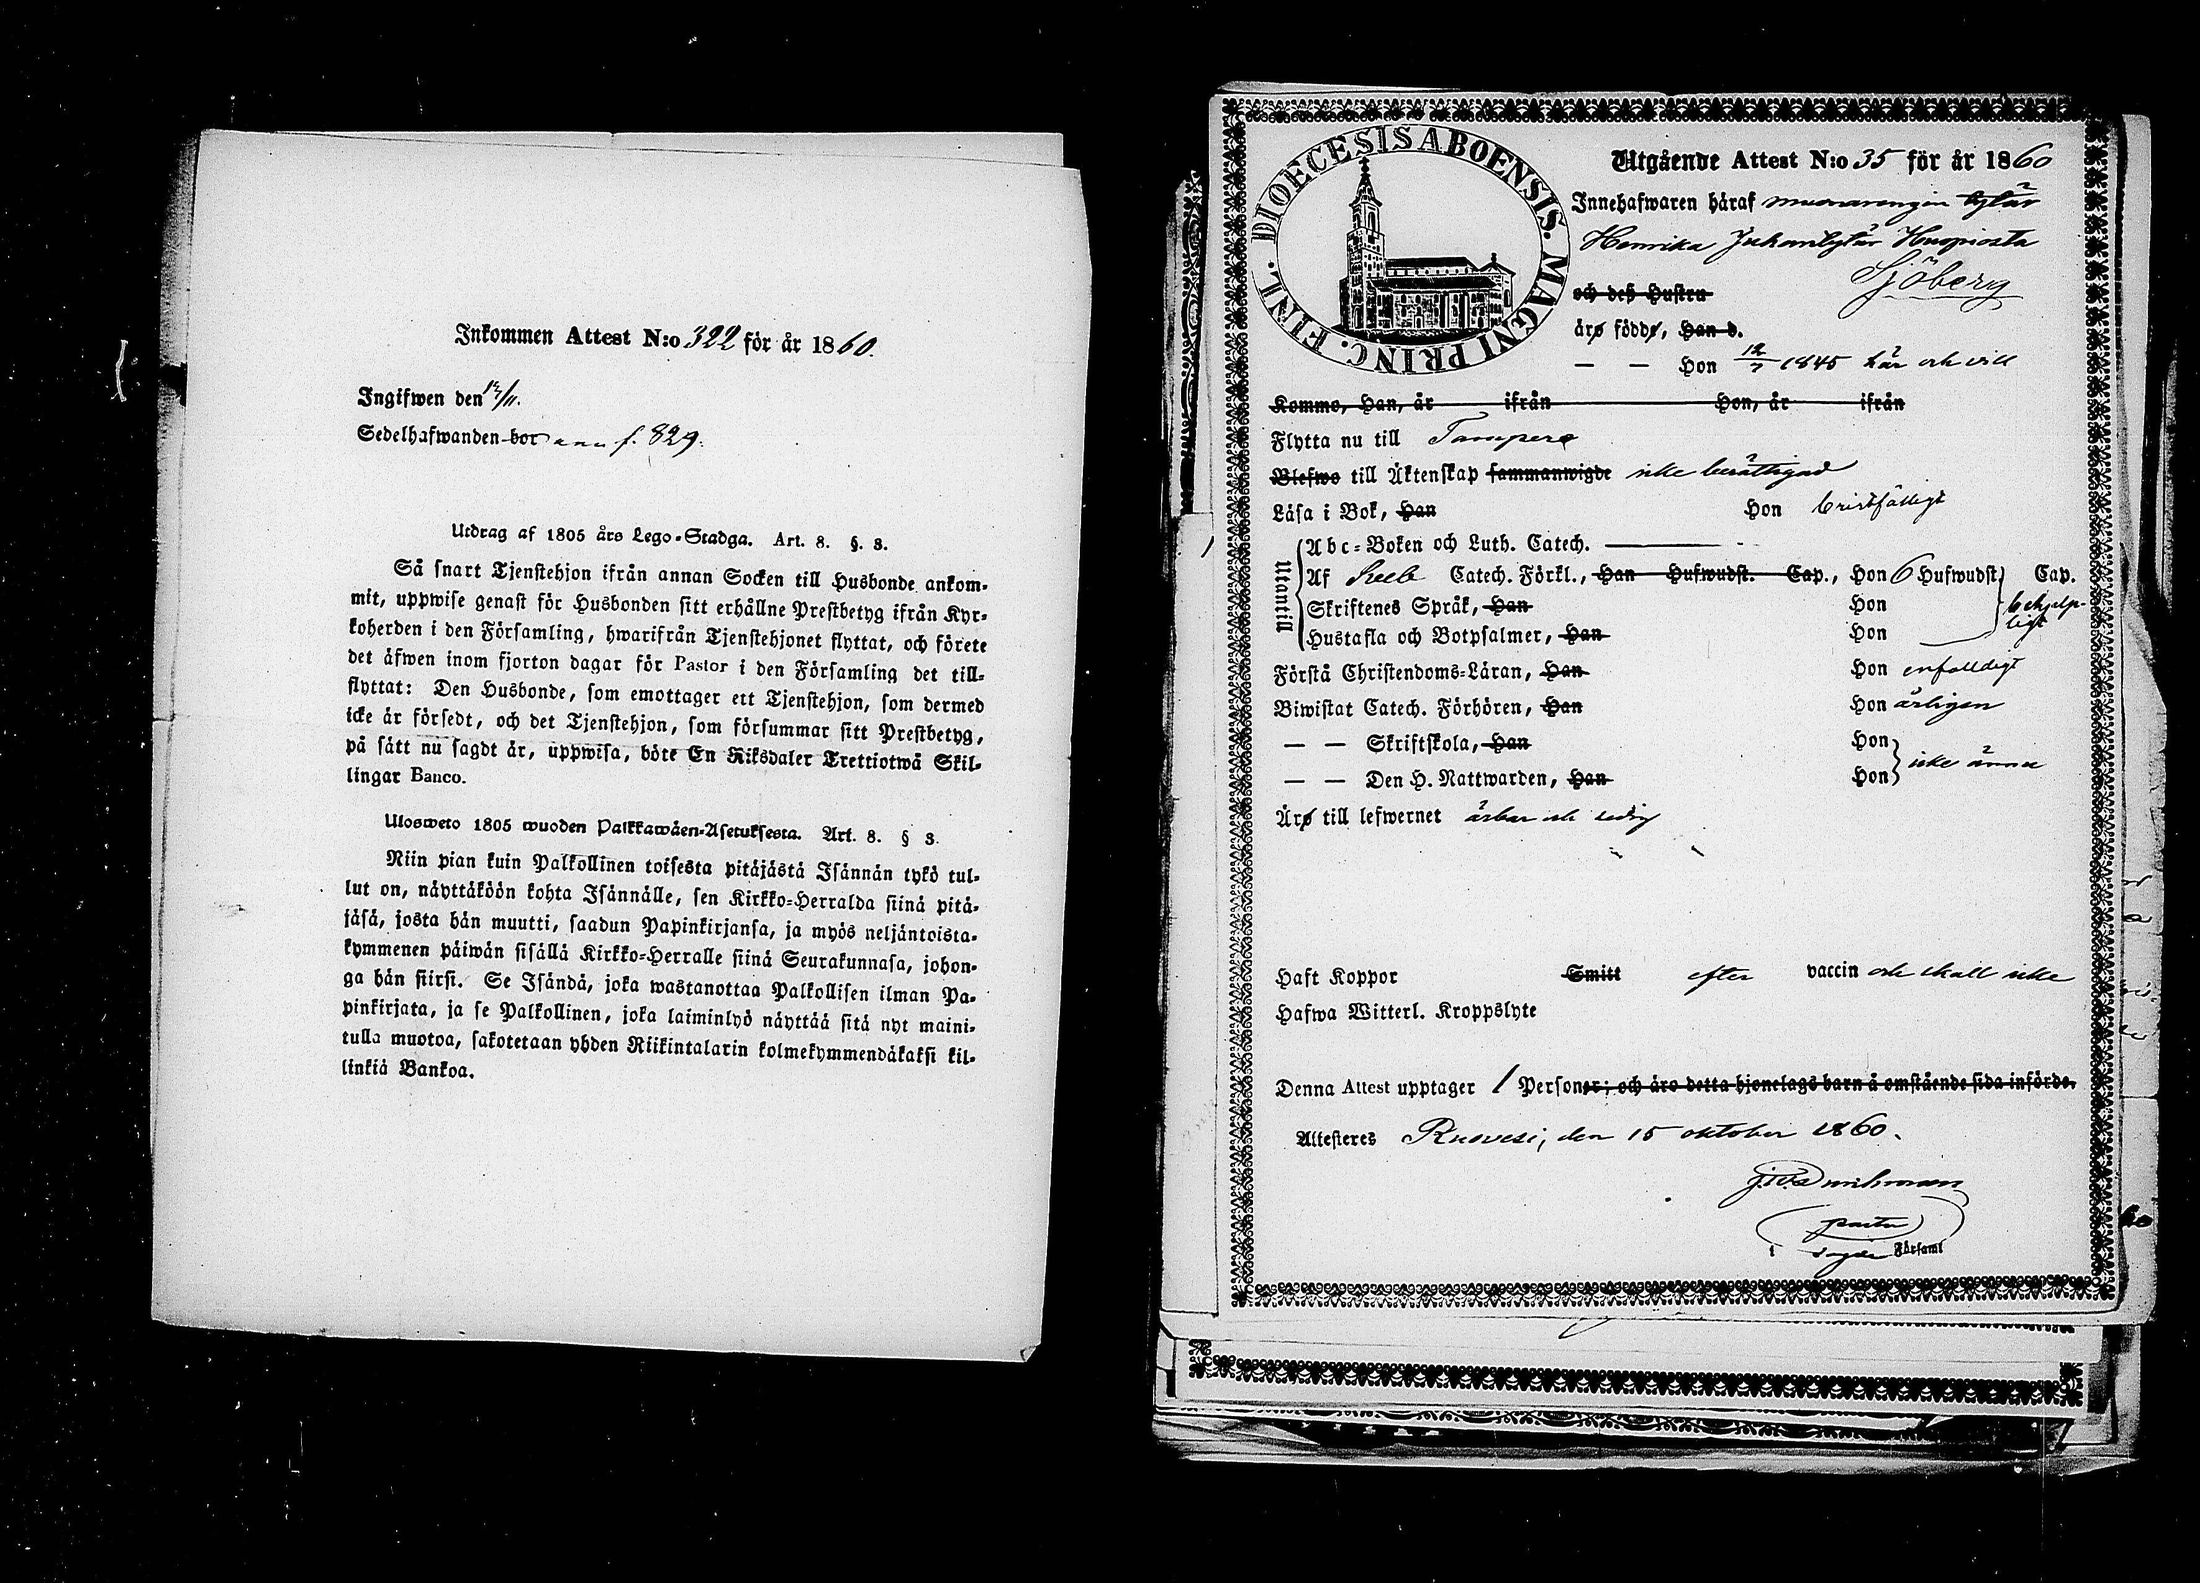 Inkommen Attest N:o 322 för år 1860.
Ingifwen den 12/11.
Sedelhafwanden bor f. 829.
Utdrag af 1805 års Lego-Stadga. Art. 8. §. 3.
Så snart Tjenstehjon ifrån annan Socken till Husbonde ankom-
mit, uppwise genast för Husbonden sitt erhållne Prestbetyg ifrån Kyr-
koherden i den Församling, hwarifrån Tjenstehjonet flyttat, och förete
det äfwen inom fjorton dagar för Pastor i den Församling det till-
flyttat: Den Husbonde, som emottager ett Tjenstehjon, som dermed
icke är försedt, och det Tjenstehjon, som försummar sitt Prestbetyg,
på sätt nu sagdt är, uppwisa, böte En Riksdaler Trettiotwå Skil-
lingar Banco.
Ulosweto 1805 wuoden Palkkawäen-Asetuksesta. Art. 8. § 3.
Niin pian kuin Palkollinen toisesta pitäjästä Isännän tykö tul-
lut on, näyttäköön kohta Isännälle, sen Kirkko-Herralda siinä pitä-
jäsä, josta hän muutti, saadun Papinkirjansa, ja myös neljäntoista-
kymmenen päiwän sisällä Kirkko-Herralle siinä Seurakunnasa, johon-
ga hän siirsi. Se Isändä, joka wastanottaa Palkollisen ilman Pa-
pinkirjata, ja se Palkollinen, joka laiminlyö näyttää sitä nyt maini-
tulla muotoa, sakotetaan yhden Riikintalarin kolmekymmendäkaksi kil-
linkiä Bankoa.
DIOECESIS ABOENSIS. MAGNI PRINC. FINL.
Utgående Attest N:o 35 för år 1860
Innehafwaren häraf muonarengin tytär
Henrika Juhontytär Huopiosta
Sjöberg
och deß Hustru
äro födde, Han d.
— — Hon 12/7 1845 här och vill
Komme, Han, år ifrån Hon, år ifrån
Flytta nu till Tampere
Blefwo till Äktenskap sammanwigde icke berättigad
Läsa i Bok, Han Hon bristfälligt
Utantill
Abc-Boken och Luth. Catech. —
Af Catech. Förkl., Han Hufwudst. Cap., Hon 6 Hufwudst. Cap.
Skriftenes Språk, Han Hon behjelp-
ligt
Hustafla och Botpsalmer, Han Hon
Förstå Christendoms-Läran, Han Hon enfaldigt
Biwistat Catech. Förhören, Han Hon årligen
— — Skriftskola, Han Hon
— — Den H. Nattwarden, Han Hon icke ännu
Äro till lefwernet ärbar och sedig
Haft Koppor Smitt efter vaccin och skall icke
Hafwa Witterl. Kroppslyte
Denna Attest upptager 1 Personer; och äro detta hjonelags barn å omstående sida införde.
Attesteres Ruovesi, den 15 oktober 1860.
pastor
i Församl